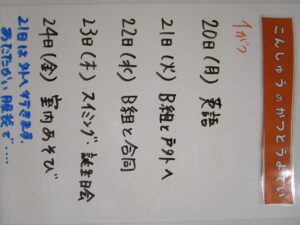 こんしゅうのかつどうよてい
1がつ
20日(月) 英語
21日(火) B組と戸外へ
22日(水) B組と合同
23日(木) スイミング・誕生日会
24日(金) 室内あそび
21日は外へ行きます。
あたたかい服装で‥‥